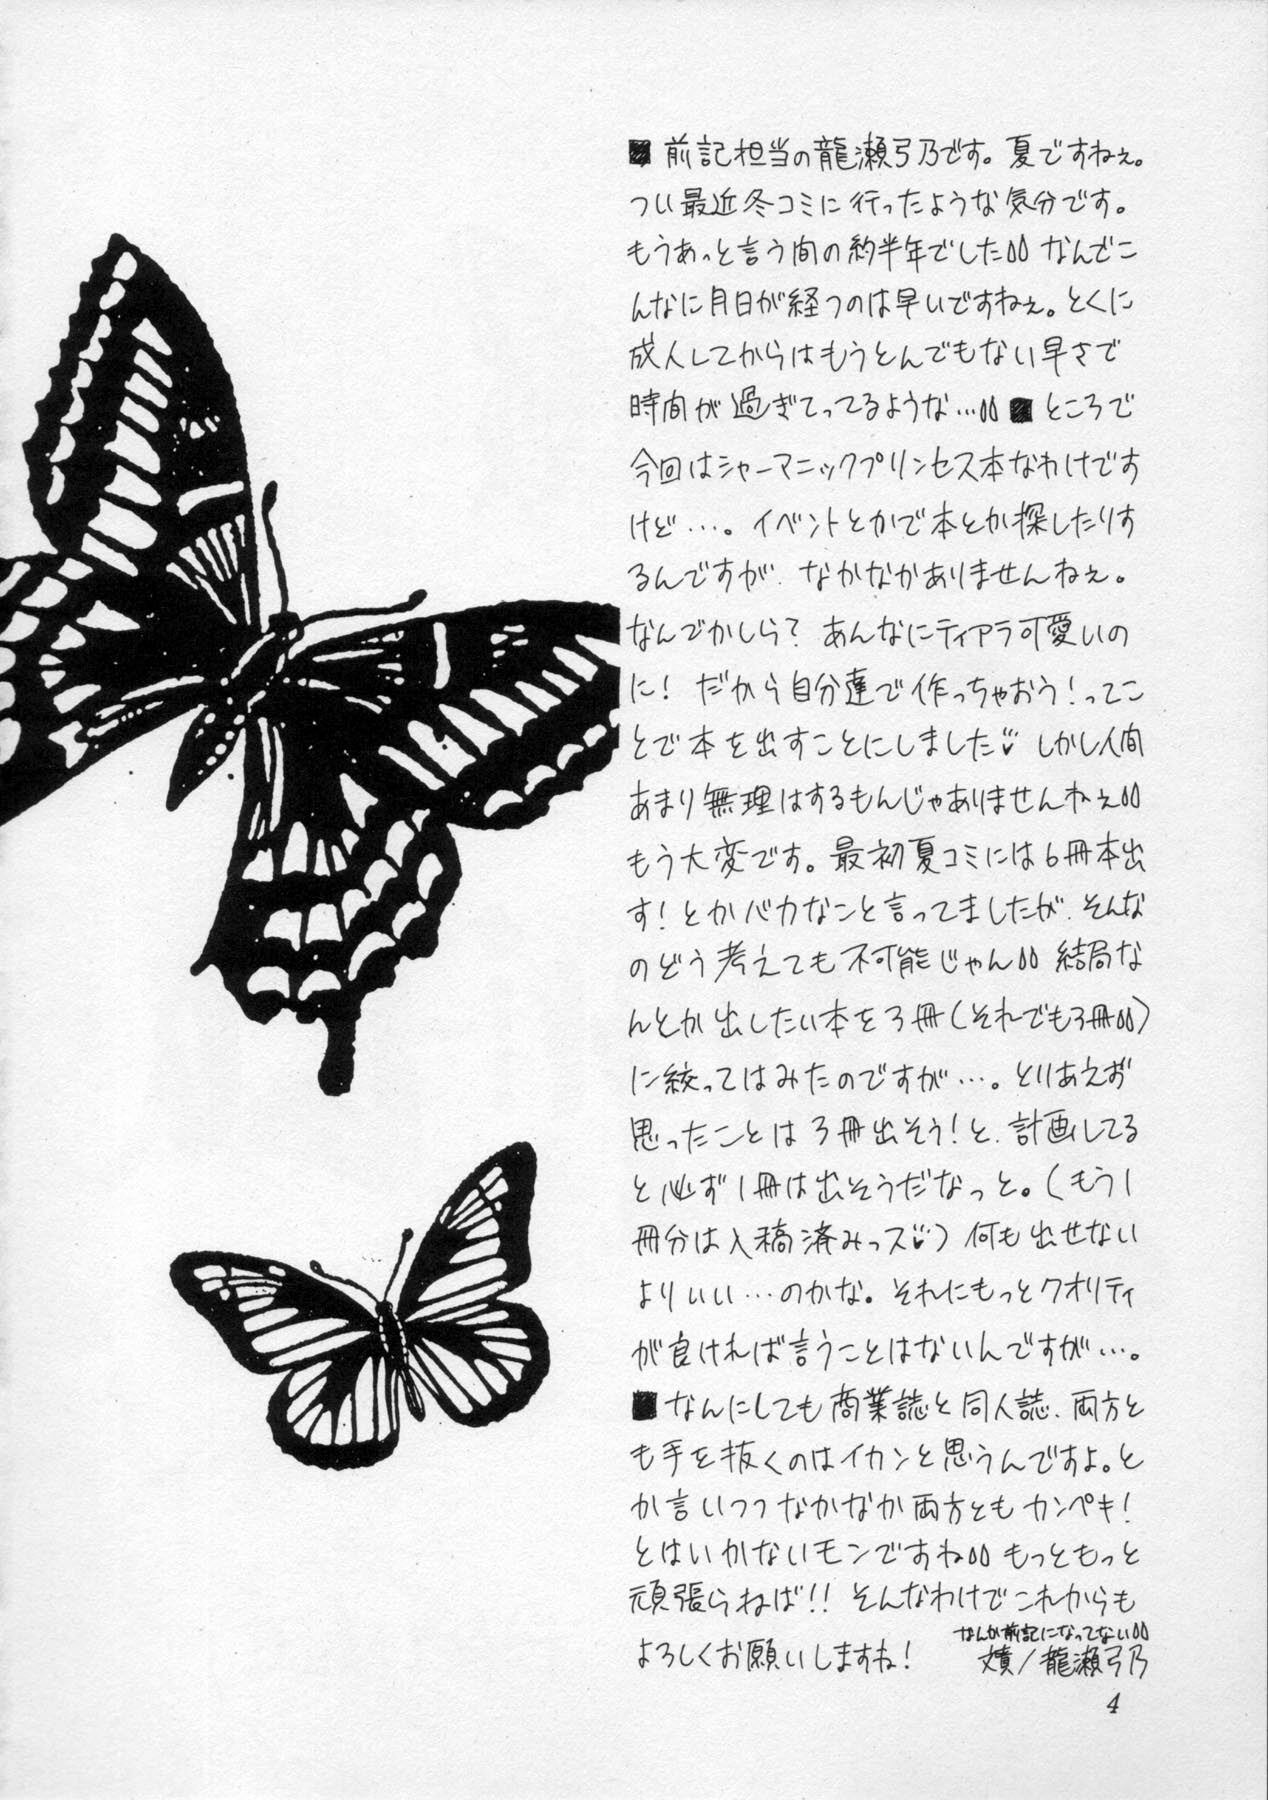 ■ 前記担当の龍瀬弓乃です。夏ですねぇ。
つい最近冬コミに行ったような気分です。
もうあっと言う間の約半年でした なんでこ
んなに月日が経つのは早いですねぇ。とくに
成人してからはもうとんでもない早さで
時間が過ぎてってるような… ■ ところで
今回はシャーマニックプリンセス本なわけです
けど…。イベントとかで本とか探したりす
るんですが、なかなかありませんねぇ。
なんでかしら？ あんなにティアラ可愛いの
に！ だから自分達で作っちゃおう！ってこ
とで本を出すことにしました♡ しかし人間
あまり無理はするもんじゃありませんねぇ
もう大変です。最初夏コミには6冊本出
す！とかバカなこと言ってましたが、そんな
のどう考えても不可能じゃん 結局な
んとか出したい本を3冊（それでも3冊）
に絞ってはみたのですが…。とりあえず
思ったことは3冊出そう！と、計画してる
と必ず1冊は出そうだなっと。（もう1
冊分は入稿済みっス♡）何も出せない
よりいい…のかな。それにもっとクオリティ
が良ければ言うことはないんですが…。
■ なんにしても商業誌と同人誌、両方と
も手を抜くのはイカンと思うんですよ。と
か言いつつなかなか両方ともカンペキ！
とはいかないモンですね もっともっと
頑張らねば！！ そんなわけでこれからも
よろしくお願いしますね！
なんか前記になってない
／龍瀬弓乃
4